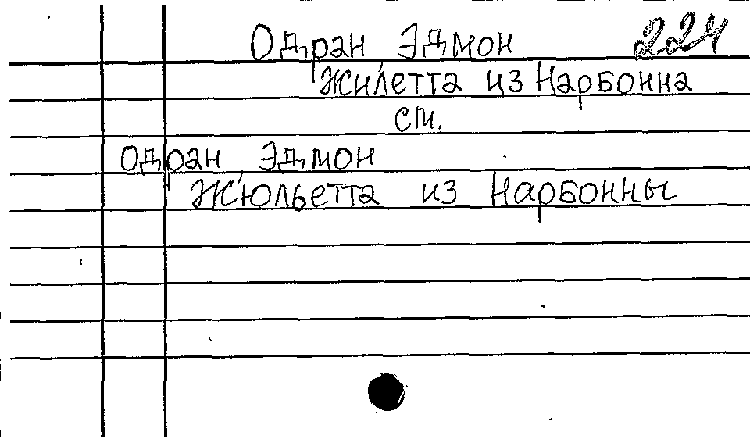 Одран, Эдмон 224
Жилетта из Нарбонна
см.
Одран, Эдмон
Жюльетта из Нарбонны